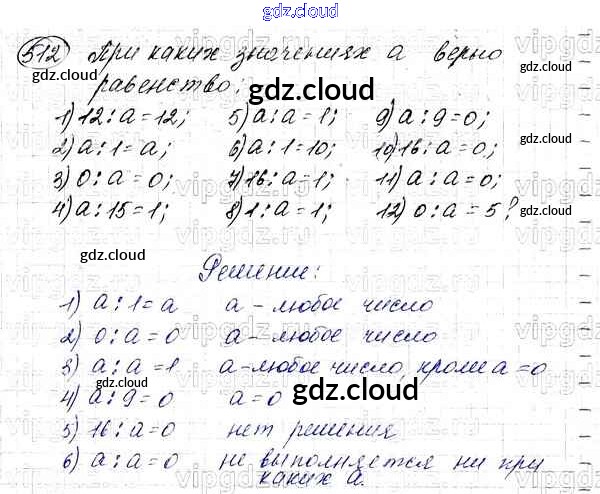 gdz.cloud
512 При каких значениях а верно
равенство:
1) 12 : а = 12; 5) а : а = 1; 9) а : 9 = 0;
2) а : 1 = а; 6) а : 1 = 10; 10) 16 : а = 0;
3) 0 : а = 0; 7) 16 : а = 1; 11) а : а = 0;
4) а : 15 = 1; 8) 1 : а = 1; 12) 0 : а = 5?
Решение:
1) а : 1 = а а - любое число
2) 0 : а = 0 а - любое число
3) а : а = 1 а - любое число, кроме а = 0
4) а : 9 = 0 а = 0
5) 16 : а = 0 нет решения
6) а : а = 0 не выполняется ни при
каких а.
gdz.cloud